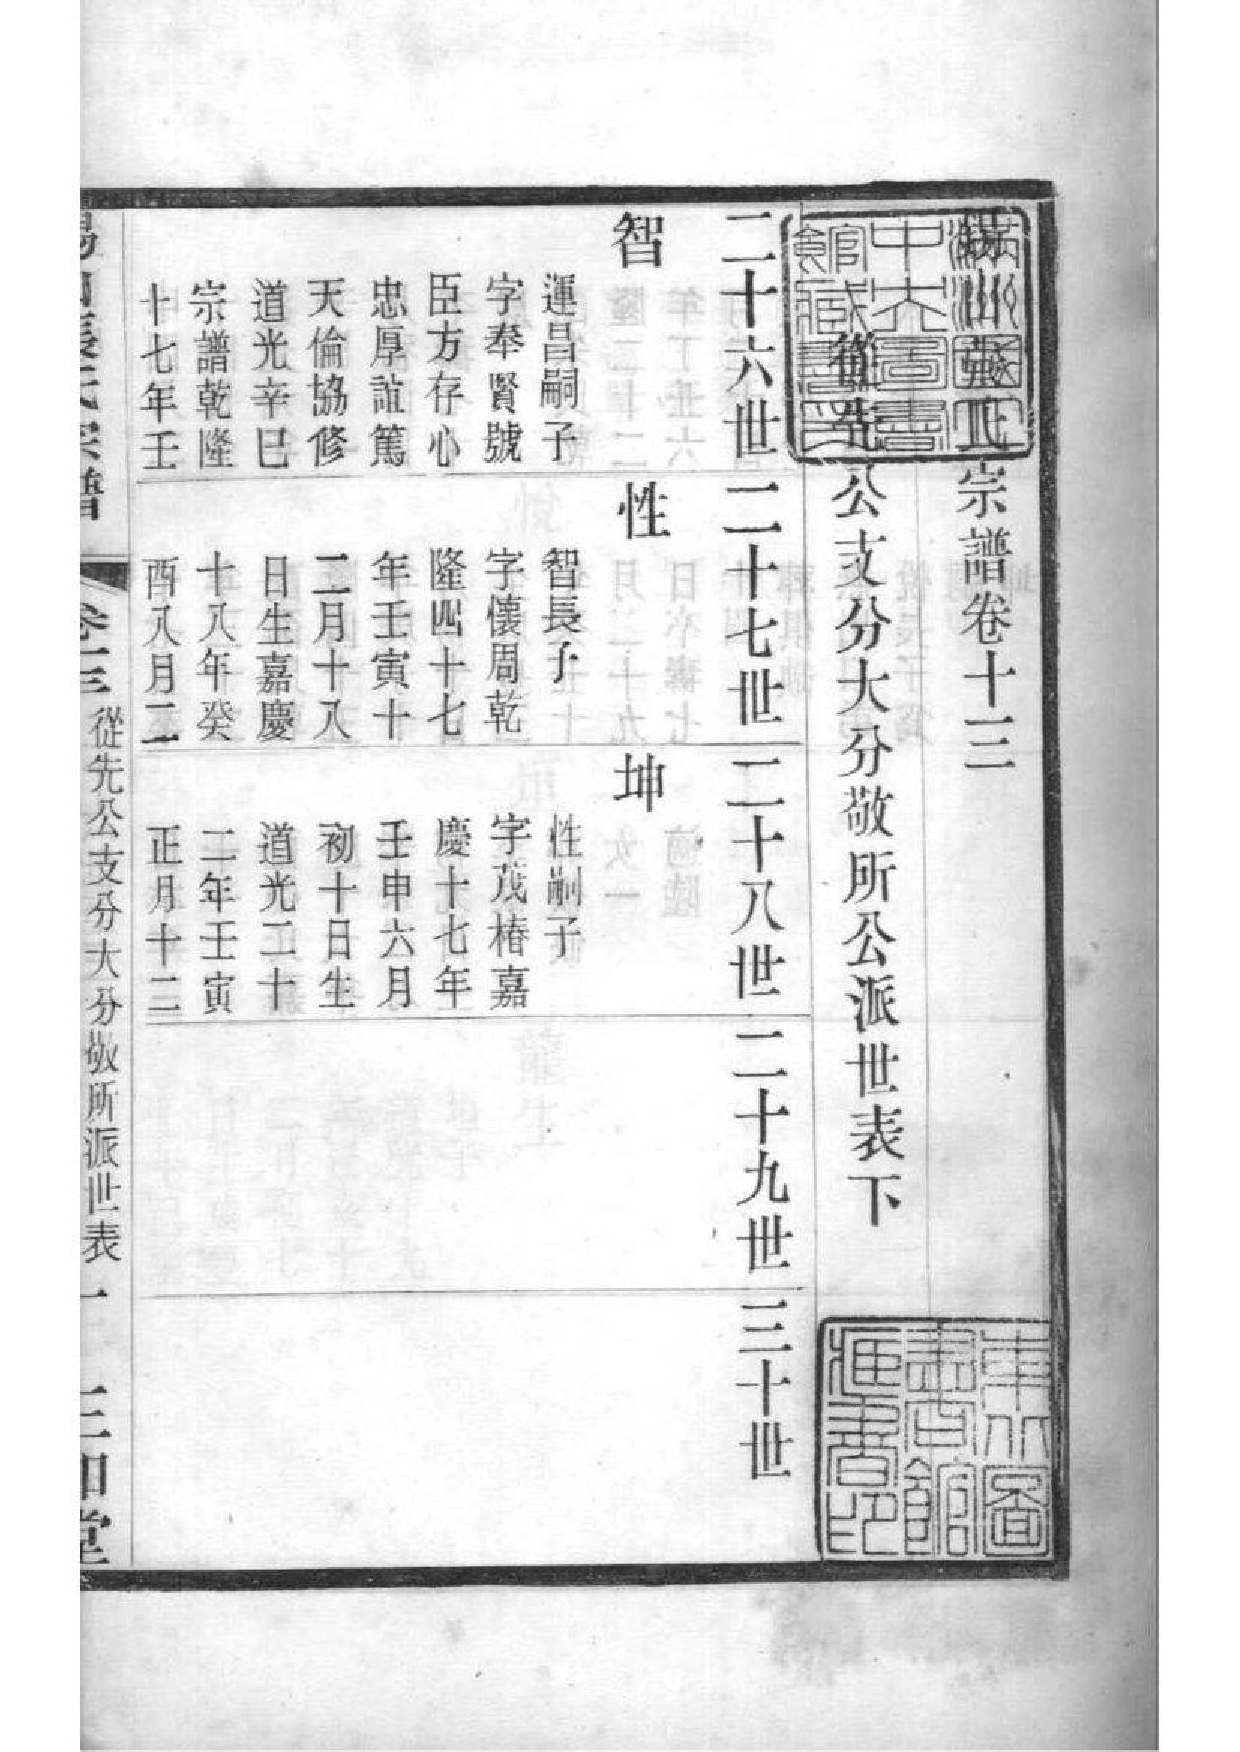 錫山張氏宗譜卷十三
從先公支分大分敬所公派世表下
二十六世
二十七世
二十八世
二十九世
三十世
智
運昌嗣子
字奉賢號
臣方存心
忠厚誼篤
天倫協修
道光辛巳
宗譜乾隆
十七年壬
性
智長子
字懷周乾
隆四十七
年壬寅十
二月十八
日生嘉慶
十八年癸
酉八月二
坤
性嗣子
字茂椿嘉
慶十七年
壬申六月
初十日生
道光二十
二年壬寅
正月十二
錫山張氏宗譜
卷十三
從先公支分大分敬所派世表
一
三和堂